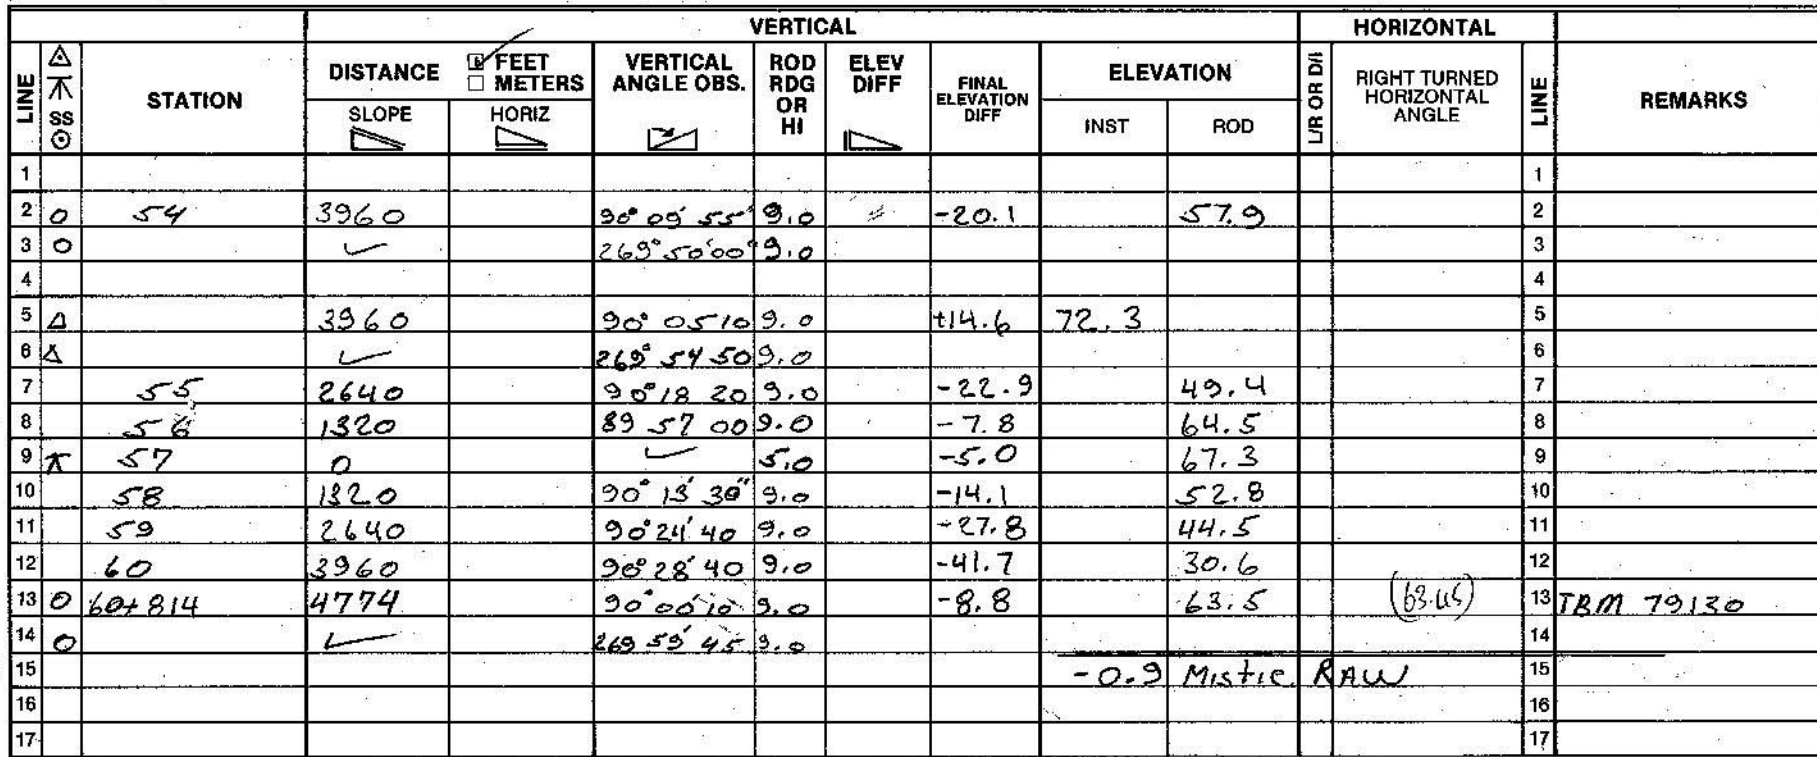 VERTICAL HORIZONTAL
LINE △ ⊼ SS ⊙ STATION DISTANCE ☑ FEET ☐ METERS VERTICAL ANGLE OBS. ROD RDG OR HI ELEV DIFF FINAL ELEVATION DIFF ELEVATION L/R OR D/I RIGHT TURNED HORIZONTAL ANGLE LINE REMARKS
SLOPE HORIZ INST ROD
1 1
2 O 54 3960 90° 09' 55" 9.0 -20.1 57.9 2
3 O ✓ 269° 50' 00" 9.0 3
4 4
5 △ 3960 90° 05 10 9.0 +14.6 72.3 5
6 △ ✓ 269° 54 50 9.0 6
7 55 2640 90° 18 20 9.0 -22.9 49.4 7
8 56 1320 89 57 00 9.0 -7.8 64.5 8
9 ⊼ 57 0 ✓ 5.0 -5.0 67.3 9
10 58 1320 90° 13' 30" 9.0 -14.1 52.8 10
11 59 2640 90° 24' 40 9.0 -27.8 44.5 11
12 60 3960 90° 28' 40 9.0 -41.7 30.6 12
13 O 60+814 4774 90° 00' 10 9.0 -8.8 63.5 13 TBM 79130
14 O ✓ 269 59' 45 9.0 14
15 -0.9 Mistie RAW 15
16 16
17 17